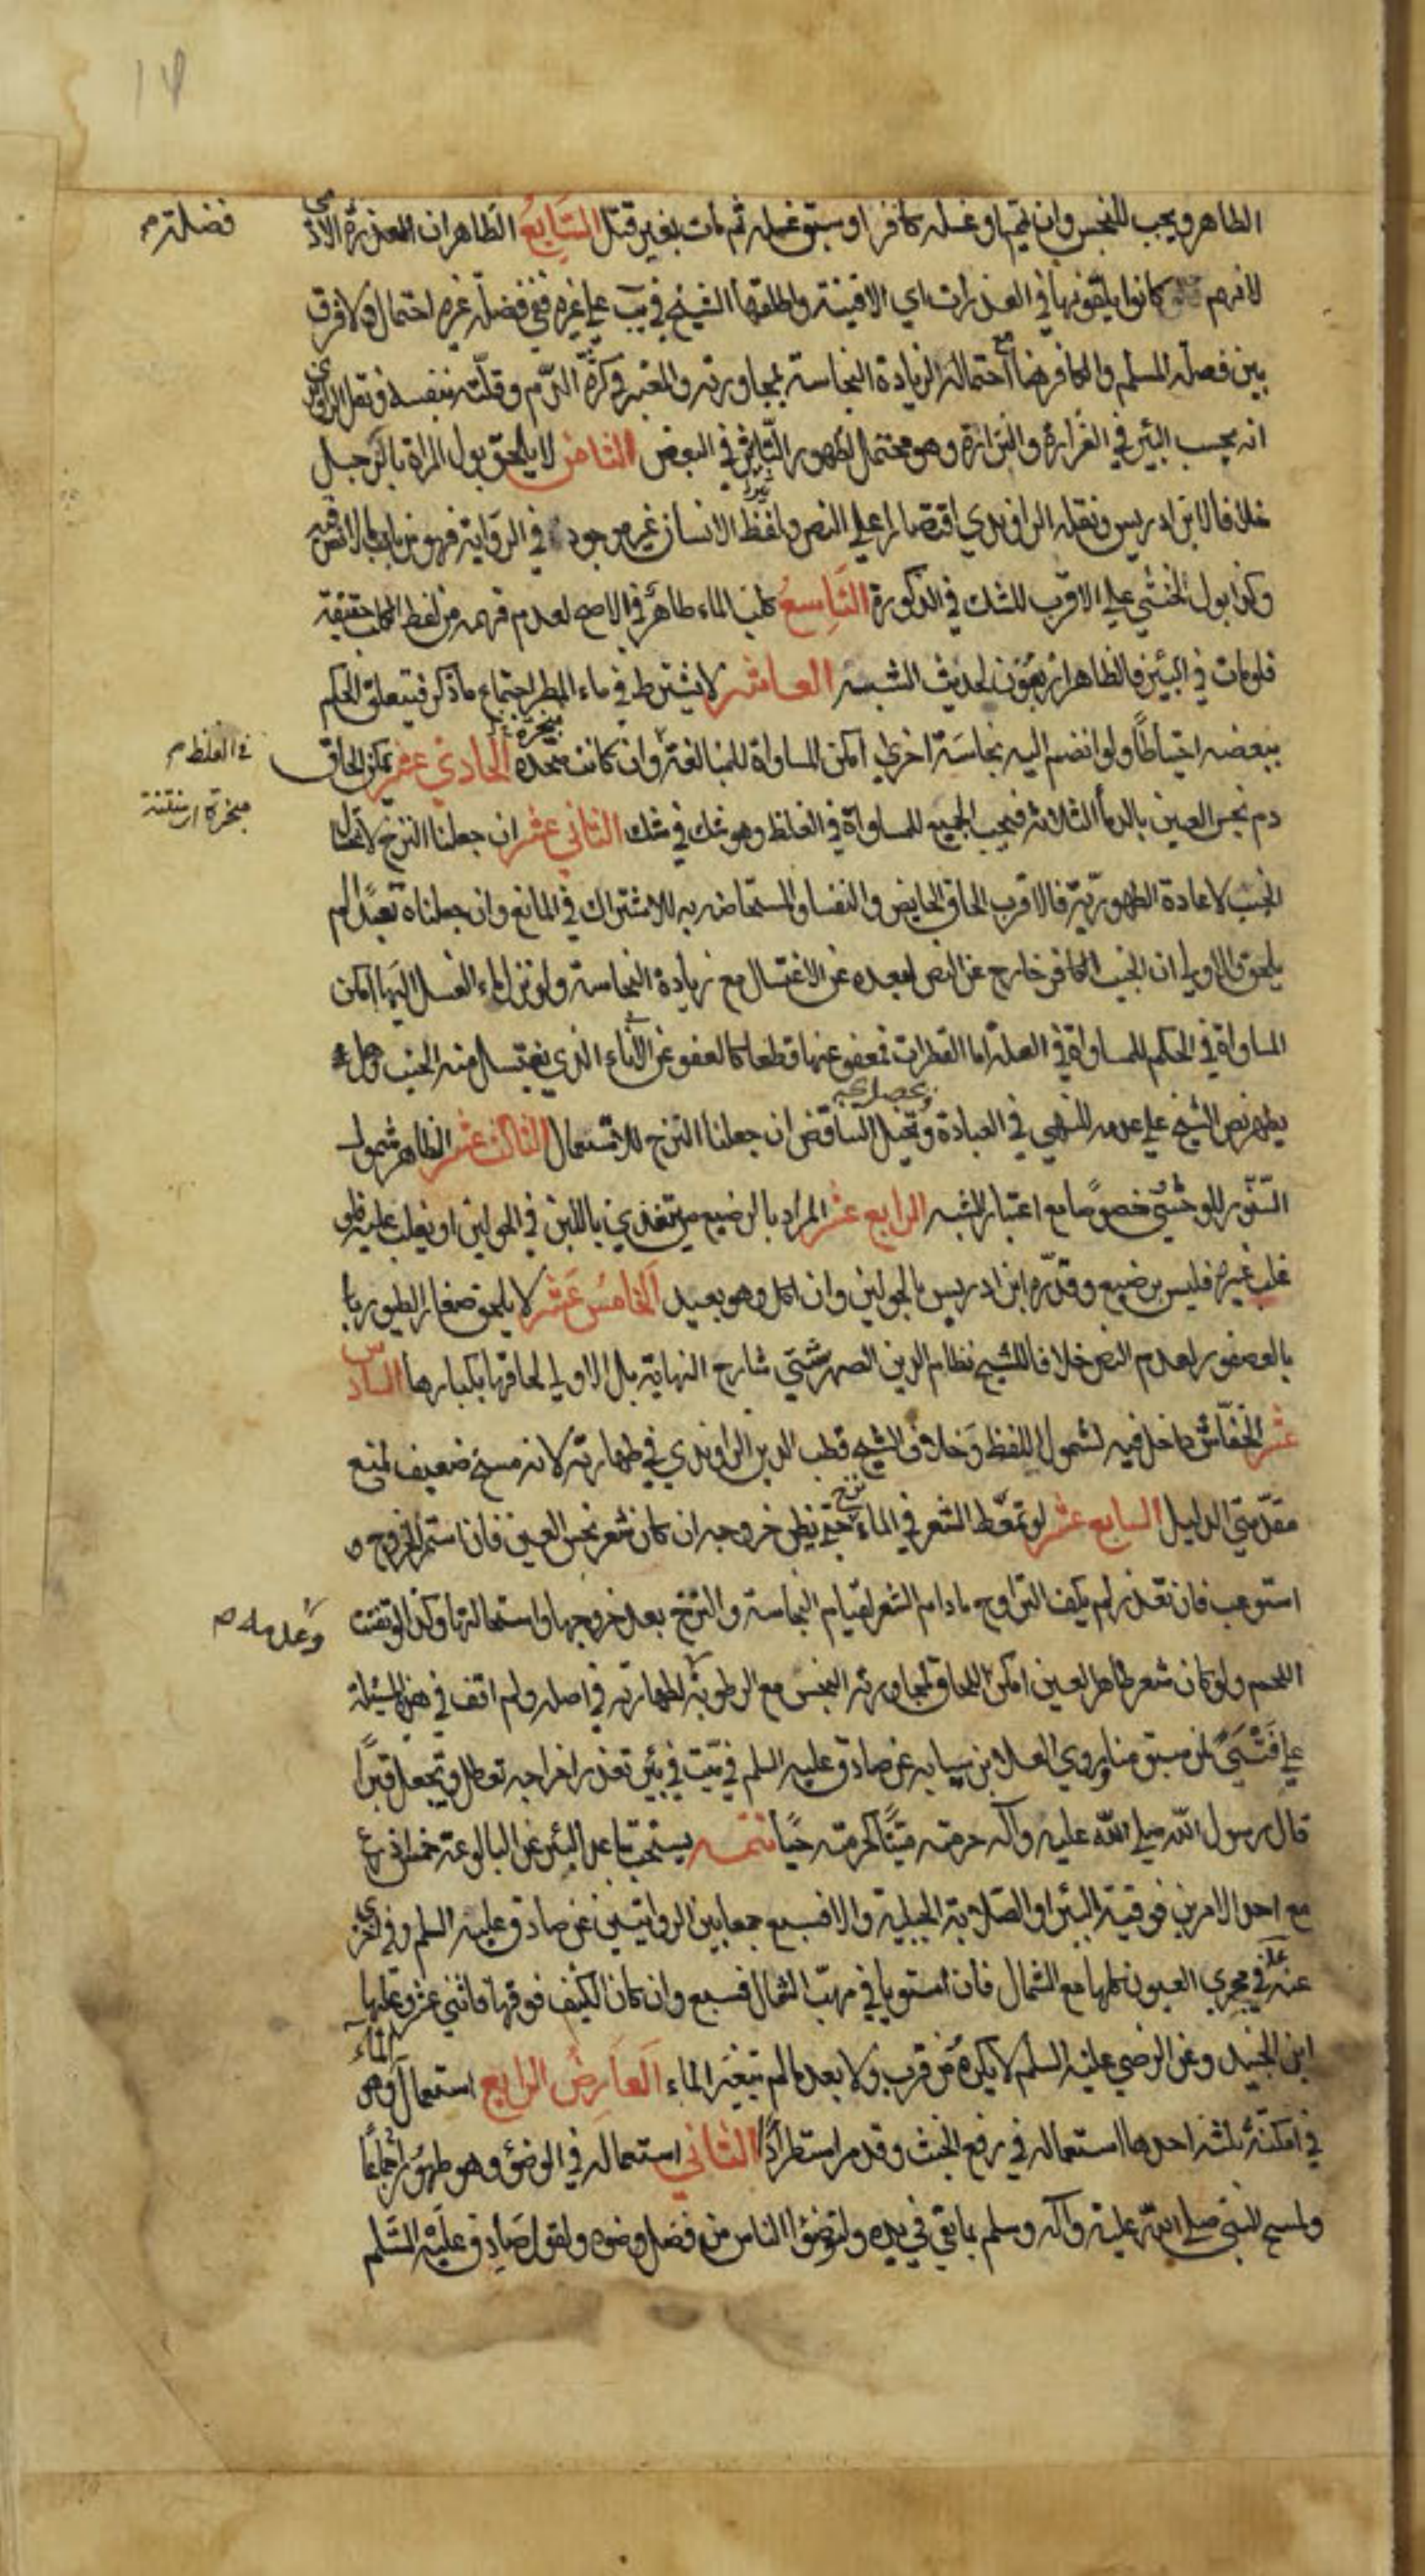 ١٤
الطاهر ويجب للنجس وان تيمم او غسله كافر او سبق غسله ثم مات بغير قتل السابع الظاهر ان العذرة فضلة الادمي
لانهم كانوا يلقونها في العذرات اي الافنية واطلقها الشيخ في يب على غيره ففي فضلة غيره احتمال ولا فرق
بين فضلة المسلم والكافر هنا مع احتماله لزيادة النجاسة بمجاورته والمعتبر في كثرة الدم وقلته بنفسه ونقل الراوندي
انه بحسب البئر في الغزارة والنزارة وهو محتمل لظهور التأثير في البعض الثامن لا يلحق بول المراة بالرجل
خلافا لابن ادريس ونقله الراوندي اقتصارا على النص ولفظ الانسان غير موجود في الرواية فهو من باب ما لا نص فيه
وكذا بول الخنثى على الاقرب للشك في الذكورة التاسع كلب الماء طاهر في الاصح لعدم فهمه من لفظ الكلب حقيقة
فلو مات في البئر فالظاهر اربعون لحديث الشبه العاشر لا يشترط في ماء المطر اجتماع ما ذكر فيتعلق الحكم
ببعضه احتياطا ولو انضم اليه نجاسة اخرى امكن المساواة للمبالغة وان كانت مبخرة الحادي عشر يمكن الحاق
في الغلظ م
مبخرة اي منتنة
دم نجس العين بالدماء الثلاثة فيجب الجميع للمساواة في الغلظ وهو شك في شك الثاني عشر ان جعلنا النزح لاغتسال
الجنب لاعادة الطهورية فالاقرب الحاق الحايض والنفساء والمستحاضة به للاشتراك في المانع وان جعلناه تعبدا لم
يلحق والاولى ان الجنب الكافر خارج عن النص لبعده عن الاغتسال مع زيادة النجاسة ولو نزل ماء الغسل اليها امكن
المساواة في الحكم للمساواة في العلة اما القطرات فمعفو عنها قطعا كالعفو عن الاناء الذي يغتسل منه الجنب وهل
يطهر نص الشيخ على عدمه للنهي في العبادة وتخيل التناقض ان جعلنا النزح للاستعمال الثالث عشر الظاهر شمول
السنور للوحشي خصوصا مع اعتبار الشبه الرابع عشر المراد بالرضيع من يغتذي باللبن في الحولين او يغلب عليه فلو
غلب غيره فليس برضيع وقدره ابن ادريس بالحولين وان اكل وهو بعيد الخامس عشر لا يلحق صغار الطيور با
بالعصفور لعدم النص خلافا للشيخ نظام الدين الصهرشتي شارح النهاية بل الاولى الحاقها بكبارها السادس
عشر الخفاش داخل فيه لشمول اللفظ وخلاف الشيخ قطب الدين الراوندي في طهارته لانه مسخ ضعيف لمنع
مقدمتي الدليل السابع عشر لو تمعط الشعر في الماء نزح حتى يظن خروجه ان كان شعر نجس العين فان استمر الخروج
استوعب فان تعذر لم يكف التراوح ما دام الشعر لقيام النجاسة والنزح بعد خروجها واستحالتها وكذا لو تفتت
اللحم ولو كان شعر طاهر العين امكن اللحاق لمجاورته النجس مع الرطوبة وعدمه لطهارته في اصله ولم اقف في هذه المسئلة
على فتيا لمن سبق منا وروي العلا بن سيابه عن صادق عليه السلم في ميت في بئر تعذر اخراجه تعطل وتجعل قبرا
قال رسول الله صلى الله عليه وآله حرمته ميتا كحرمته حيا تتمه يستحب تباعد البئر عن البالوعة خمس اذرع
مع احد الامرين فوقية البئر او الصلابة الجبلية والا فسبع جمعا بين الروايتين عن صادق عليه السلم وفي اخرى
عنه ع في مجرى العيون كلها مع الشمال فان استويا في مهب الشمال فسبع وان كان الكنيف فوقها فاثني عشر وعليها
ابن الجنيد وعن الرضي عليه السلم لا يكره من قرب ولا بعد ما لم يتغير الماء العارض الرابع استعمال الماء وهو
في امكنة ثلثة احدها استعماله في رفع الخبث وقد مر استطرادا الثاني استعماله في الوضؤ وهو طهور اجماعا
ولمسح النبي صلى الله عليه وآله وسلم بما بقي في يده ولتوضؤا الناس من فضل وضوه ولقول صادق عليه السلم